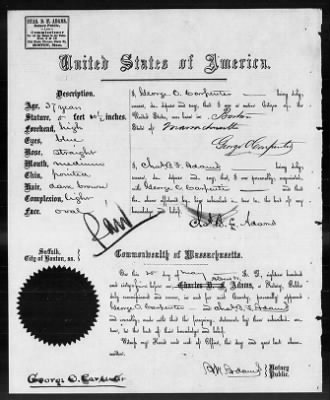 CHAS. B. F. ADAMS,
Notary Public,
Commissioner
BOSTON, Mass.
United States of America.
Description.
Age, 37 years
Stature, 5 feet inches
Forehead, high
Eyes, blue
Nose, straight
Mouth, medium
Chin, pointed
Hair, dark brown
Complexion, light
Face, oval
I, George O. Carpenter being duly
sworn, do depose and say, that I am a native Citizen of the
United States, was born in Boston
State of Massachusetts
George O. Carpenter
I, Chas. B. F. Adams being duly
sworn, do depose and say, that I am personally acquainted
with George O. Carpenter and that
the above affidavit by him subscribed is true, to the best of my
knowledge and belief.
Chas. B. F. Adams
Paid
Suffolk,
City of Boston, ss.
Commonwealth of Massachusetts.
On this day of May A. D., eighteen hundred
and sixty-five before Charles B. F. Adams, a Notary Public
duly commissioned and sworn, in and for said County, personally appeared
George O. Carpenter and Chas. B. F. Adams
and severally made oath that the foregoing statements by them subscribed, are
true, to the best of their knowledge and belief.
Witness my Hand and Seal of Office, the day and year last above
written.
Adams Notary
Public.
George O. Carpenter